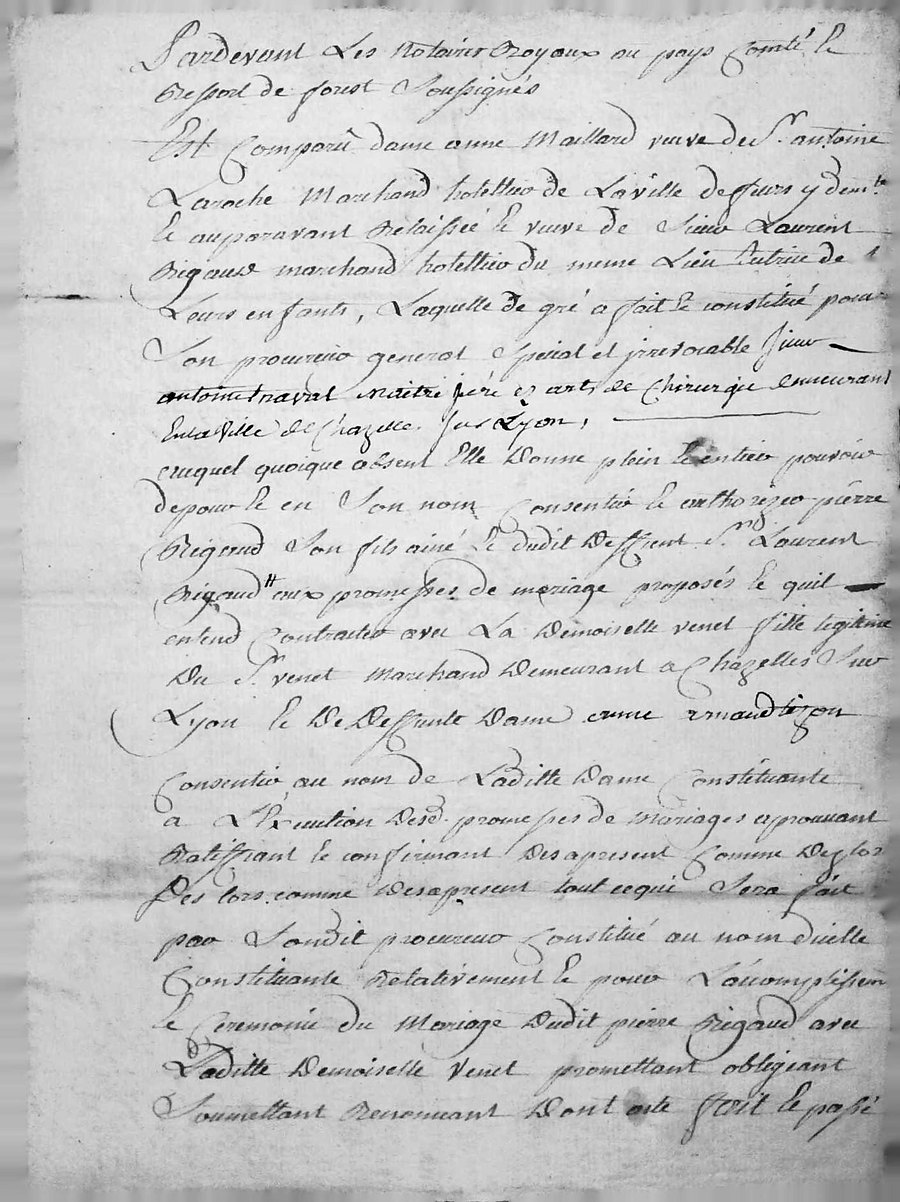 Pardevant Les Notaires Royaux au pays Comté &
Ressort de forest Soussignés
Est Comparu dame anne Maillard veuve de Sr. antoine
Laroche Marchand hotellier de La ville de feurs y demte
& auparavant Relaissée & veuve de Sieur Laurent
Rigaud marchand hotellier du meme Lieu tutrice de
Leurs enfants, Laquelle de gré a fait & constitué pour
Son procureur general Special et irrevocable Sieur
antoine naval Maitre juré ez arts de Chirurgie demeurant
En la Ville de Chazelle Sur Lyon,
auquel quoique absent Elle Donne plein & entier pouvoir
de pour & en Son nom Consentir & authorizer pierre
Rigaud Son fils ainé & dudit Deffunt Sr. Laurent
Rigaud aux promesses de mariage proposés & quil
entend Contracter avec La Demoiselle venet fille legitime
Du Sr. venet Marchand Demeurant a Chazelles Sur
Lyon & De Deffunte Dame anne
Consentir au nom de Laditte Dame Constituante
a L'Execution Desd. promesses de Mariages aprouvant
Ratiffiant & confirmant Des apresent Comme Deslors
Des lors comme Des apresent tout cequi Sera fait
par Sondit procureur Constitué au nom dicelle
Constituante Relativement & pour L'accomplissem
& Ceremonie du Mariage Dudit pierre Rigaud avec
Laditte Demoiselle Venet promettant obligeant
Soumettant Renonceant Dont acte fait & passé